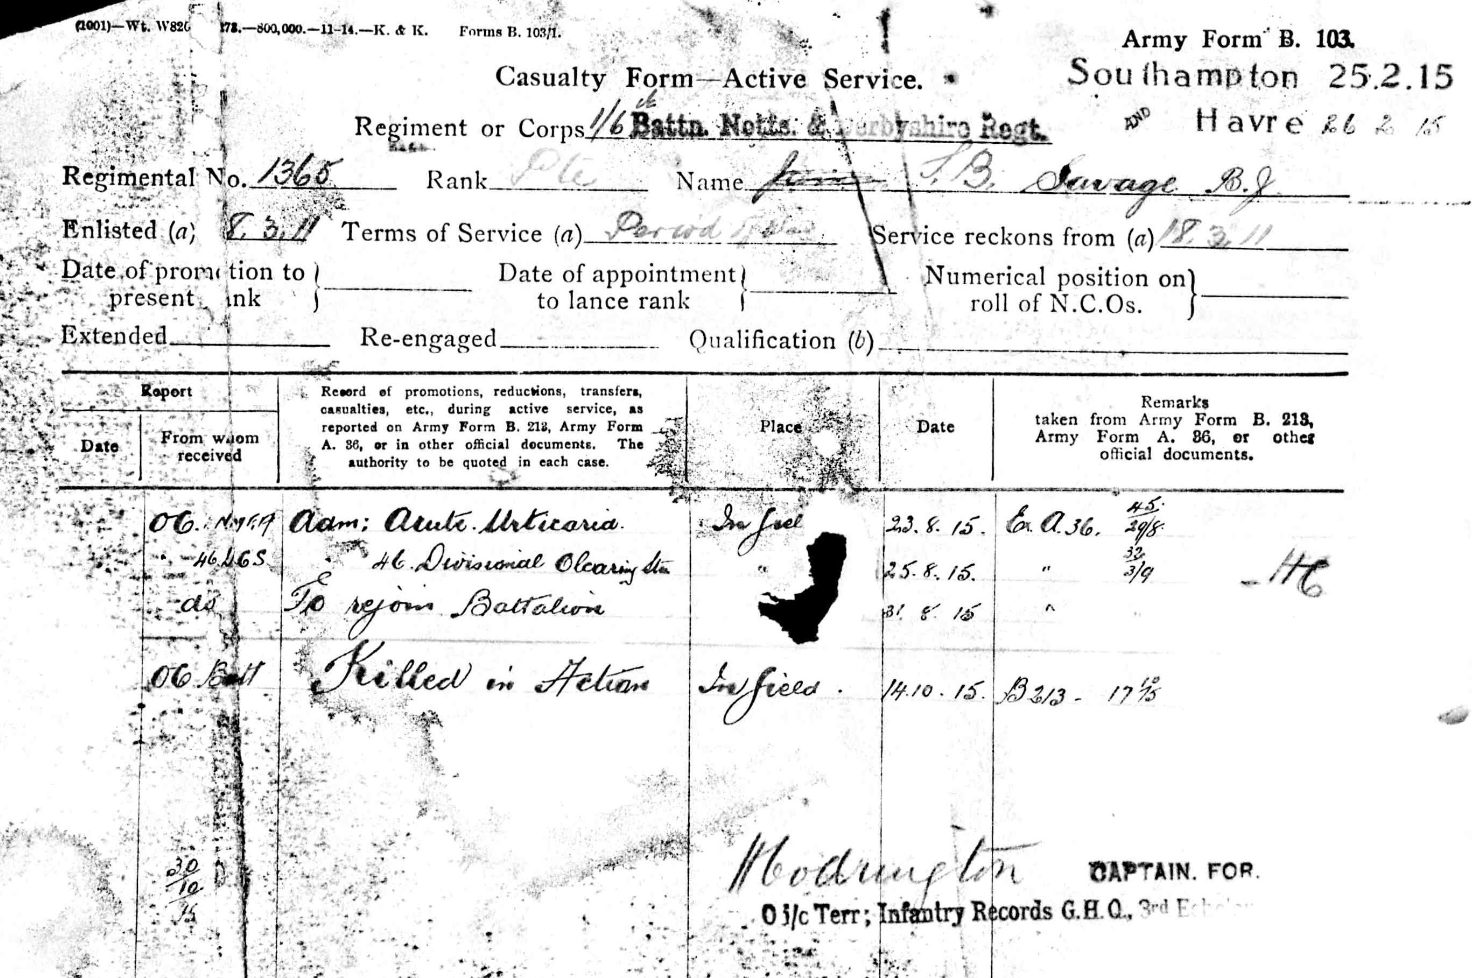 (2001)—Wt. W826 273.—800,000.—11-14.—K. & K. Forms B. 103/1.
Army Form B. 103.
Casualty Form—Active Service.
Southampton 25.2.15
AND Havre 26 2 15
Regiment or Corps 1/6th Battn. Notts. & Derbyshire Regt.
Regimental No. 1365 Rank Pte Name S. B. Savage B.J
Enlisted (a) 8.3.11 Terms of Service (a) Period Service reckons from (a) 18.3.11
Date of promotion to Date of appointment Numerical position on
present rank to lance rank roll of N.C.Os.
Extended Re-engaged Qualification (b)
Report
Date
From whom
received
Record of promotions, reductions, transfers,
casualties, etc., during active service, as
reported on Army Form B. 213, Army Form
A. 36, or in other official documents. The
authority to be quoted in each case.
Place
Date
Remarks
taken from Army Form B. 213,
Army Form A. 36, or other
official documents.
OC. Adm: Acute Urticaria. In fiel 23.8.15. A.36. 45 29/8
46 Divisional Clearing Stn " 25.8.15. " 32 3/9
do To rejoin Battalion 31 8 15 "
OC Batt Killed in Action In field. 14.10.15. B213 - 17 10/15
30
10
15
CAPTAIN. FOR.
O i/c Terr; Infantry Records G.H.Q., 3rd Echelon